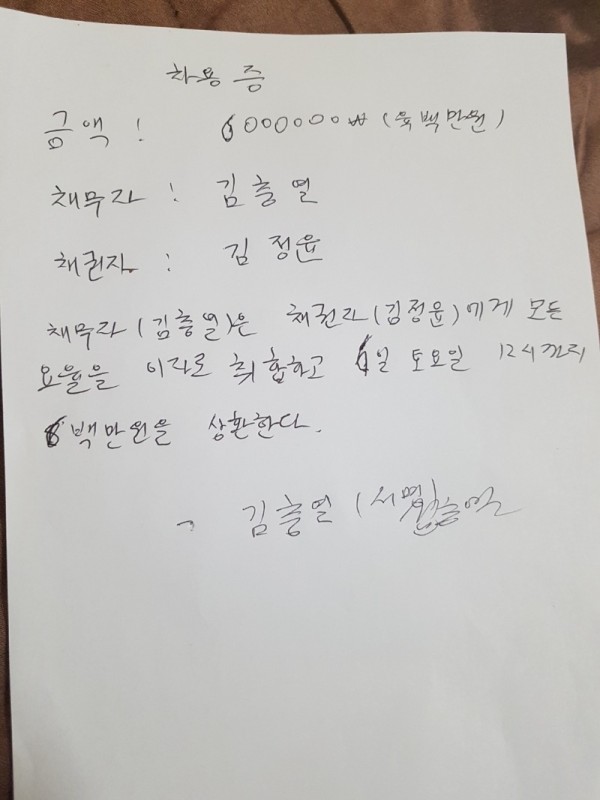 차용증
금액 : 6000000₩ (육백만원)
채무자 : 김충열
채권자 : 김정윤
채무자(김충열)은 채권자(김정윤)에게 모든
요율을 이자로 취합하고 일 토요일 12시까지
6백만원을 상환한다.
김충열 (서명)